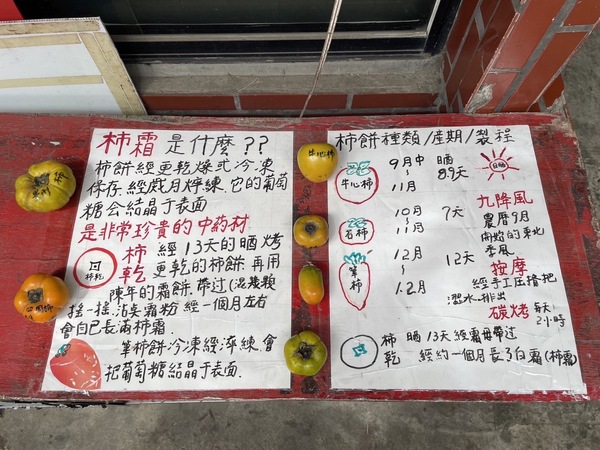 柿霜是什麼??
柿餅經更乾燥或冷凍
保存.經歲月焠練.它的葡萄
糖会結晶于表面
是非常珍貴的中药材
柿乾
柿乾 經13天的晒烤
更乾的柿餅.再用
陳年的霜餅.帶过(混幾顆
搖一搖.沾点霜粉 經一個月左右
會自己長滿柿霜.
筆柿餅.冷凍經淬練.會
把葡萄糖結晶于表面.
柿餅種類/產期/製程
牛心柿
9月中~11月
晒 8.9天
日晒
石柿
10月~11月
7天
筆柿
12月~1.2月
12天
九降風
農曆9月
開始的東北
季風
按摩
經手工压捻.把
澀水排出
碳烤 每天2小時
柿乾 晒13天.經霜母帶过
經約一個月.長了白霜(柿霜)
牛心柿
石柿
筆柿